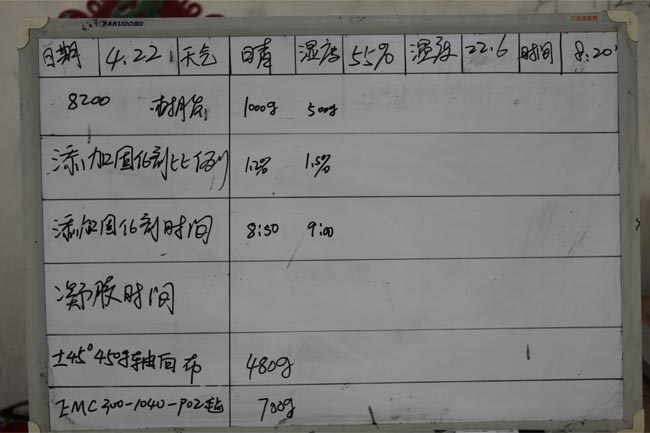 YAKUDO
日期 4.22 天气 日青 湿度 55% 湿度 22.6 时间 8:20
8200 树脂 1000g 500g
添加固化剂比例 1.2% 1.5%
添加固化剂时间 8:50 9:00
凝胶时间
±45° 450g 轴向布 480g
EMC300-1040-P02毡 700g